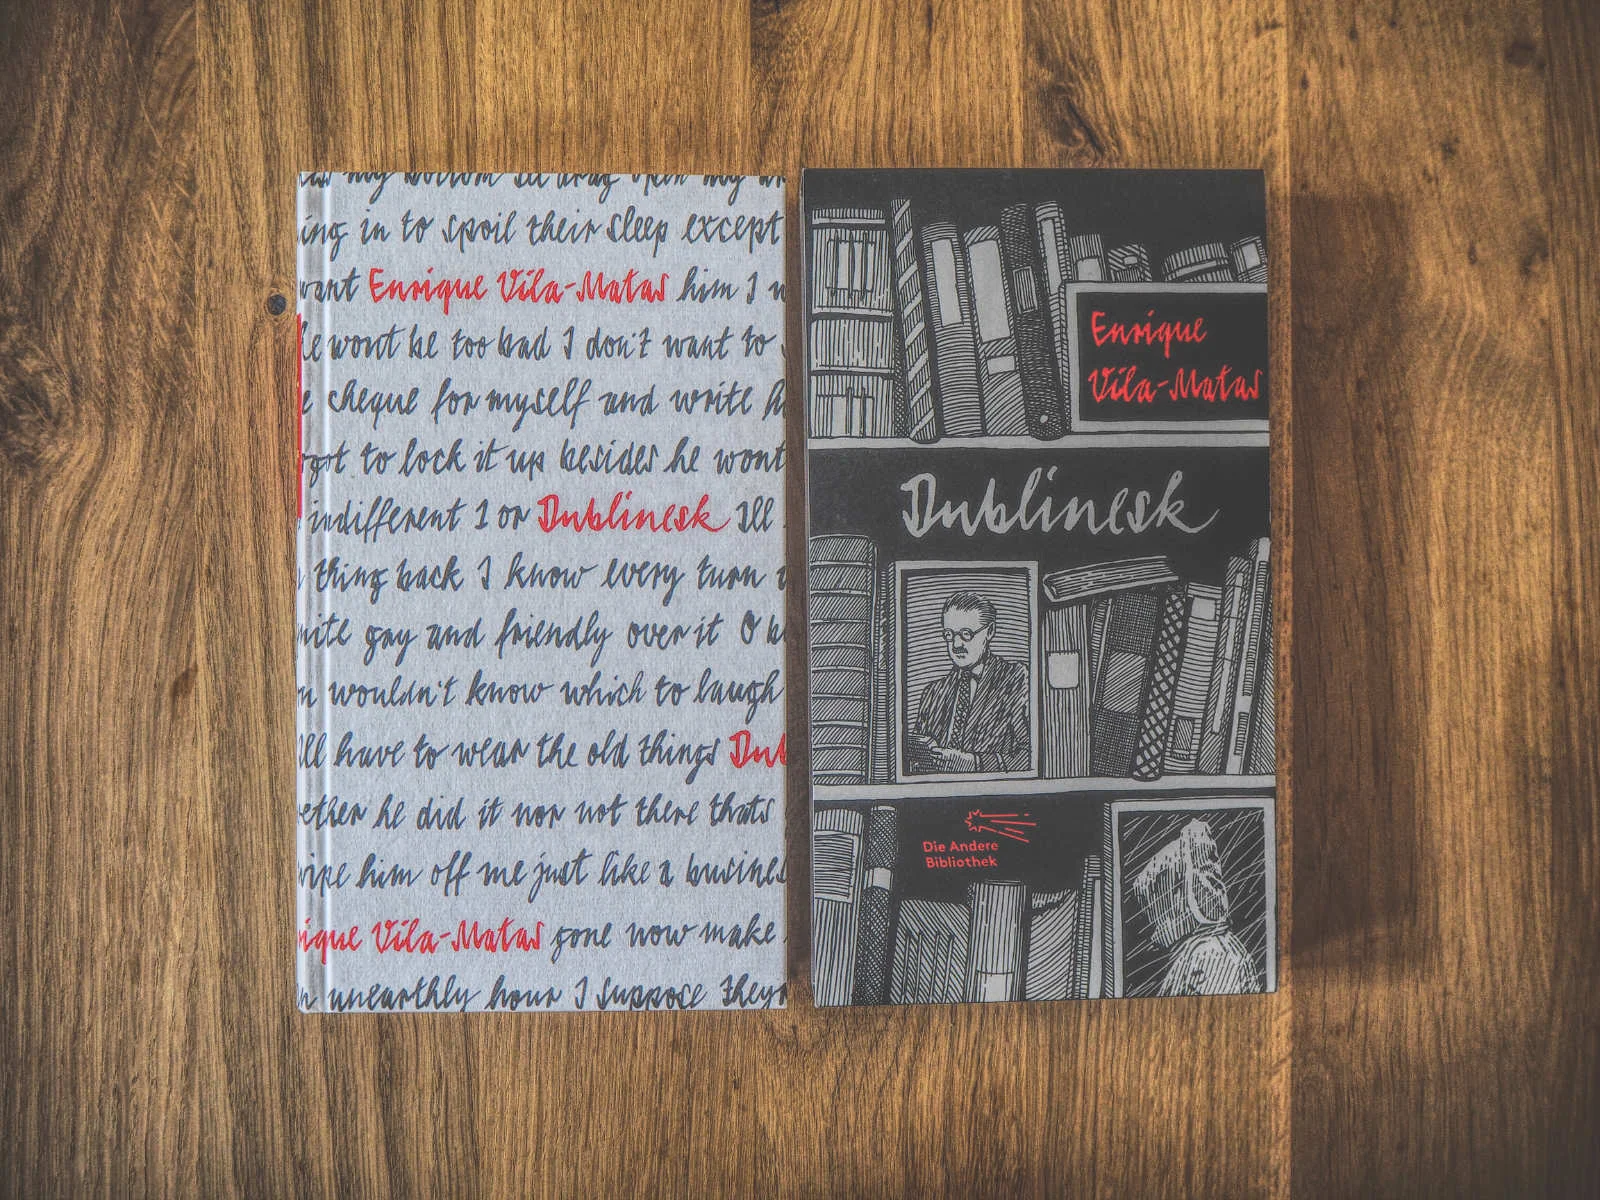 my bottom Ill drag open my
ing in to spoil their sleep except
want Enrique Vila-Matas him I
he wont be too bad I don't want to
cheque for myself and write
to lock it up besides he wont
indifferent 1 or Dublinesk Ill
thing back I know every turn
quite gay and friendly over it O
wouldn't know which to laugh
Ill have to wear the old things Dub
whether he did it nor not there thats
wipe him off me just like a busines
ique Vila-Matas gone now make
unearthly hour I suppose theyr
Enrique
Vila-Matas
Dublinesk
Die Andere
Bibliothek